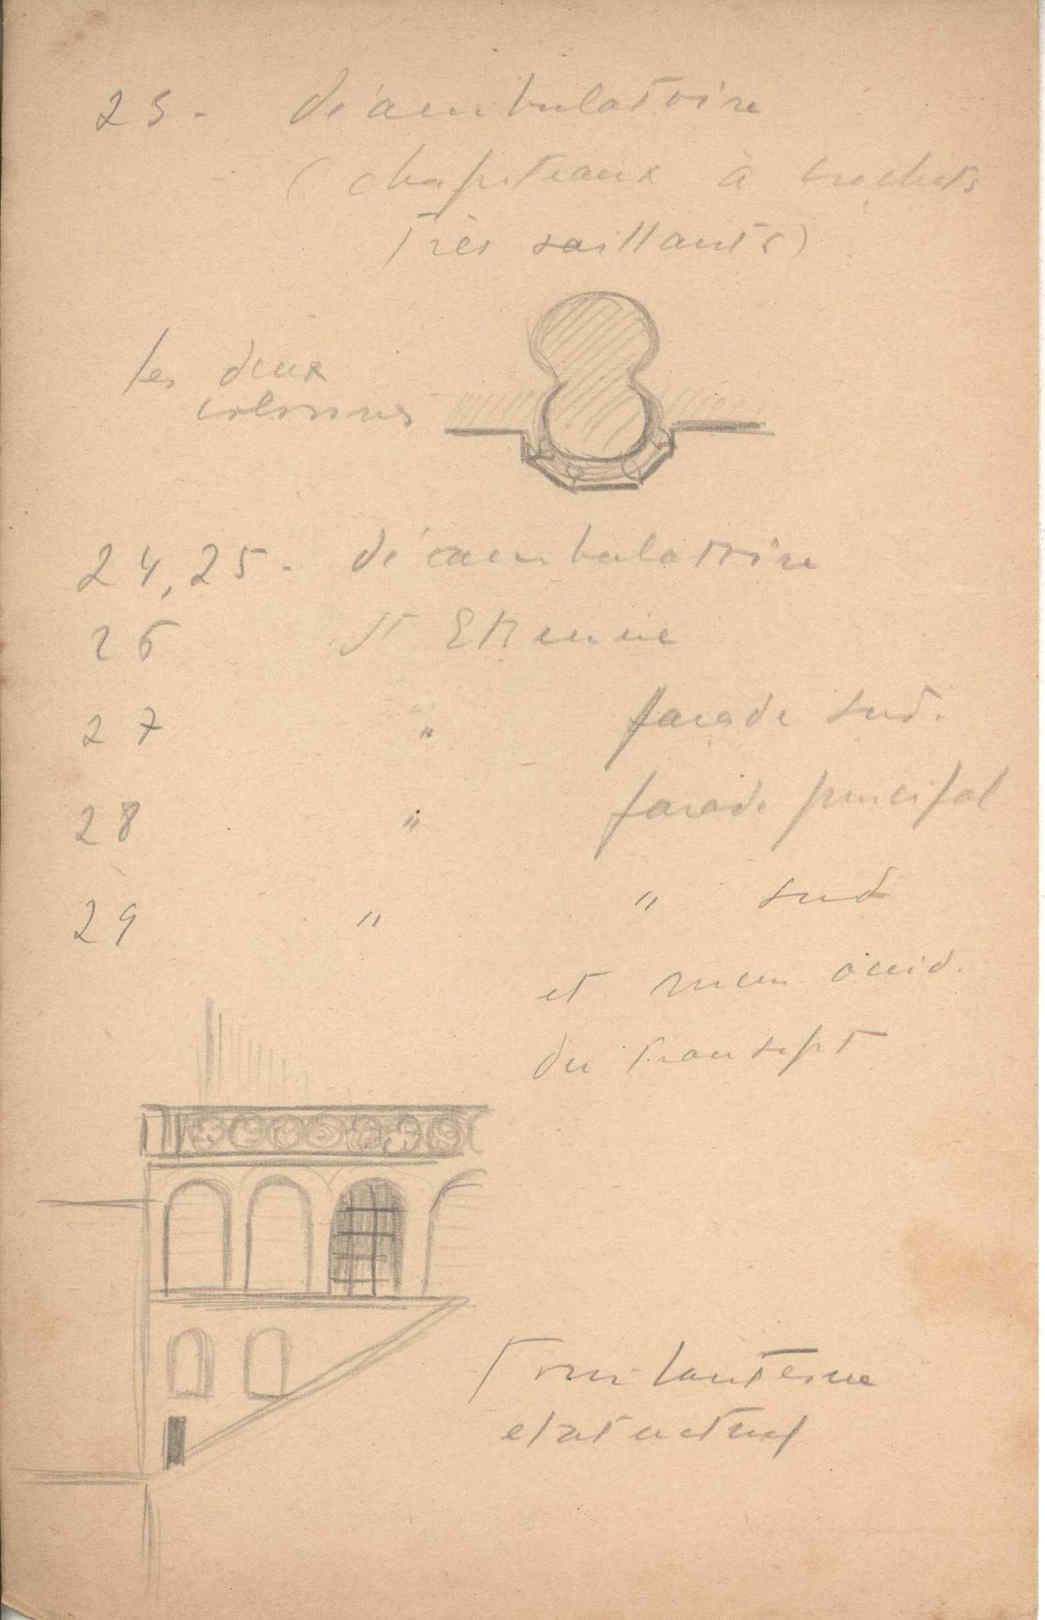 23. déambulatoire
(chapiteaux à crochets
très saillants)
les deux
colonnes
24, 25. déambulatoire
26 St Etienne
27 " façade sud.
28 " façade principal
29 " " sud
et mur occid.
du transept
Tour lanterne
etat actuel